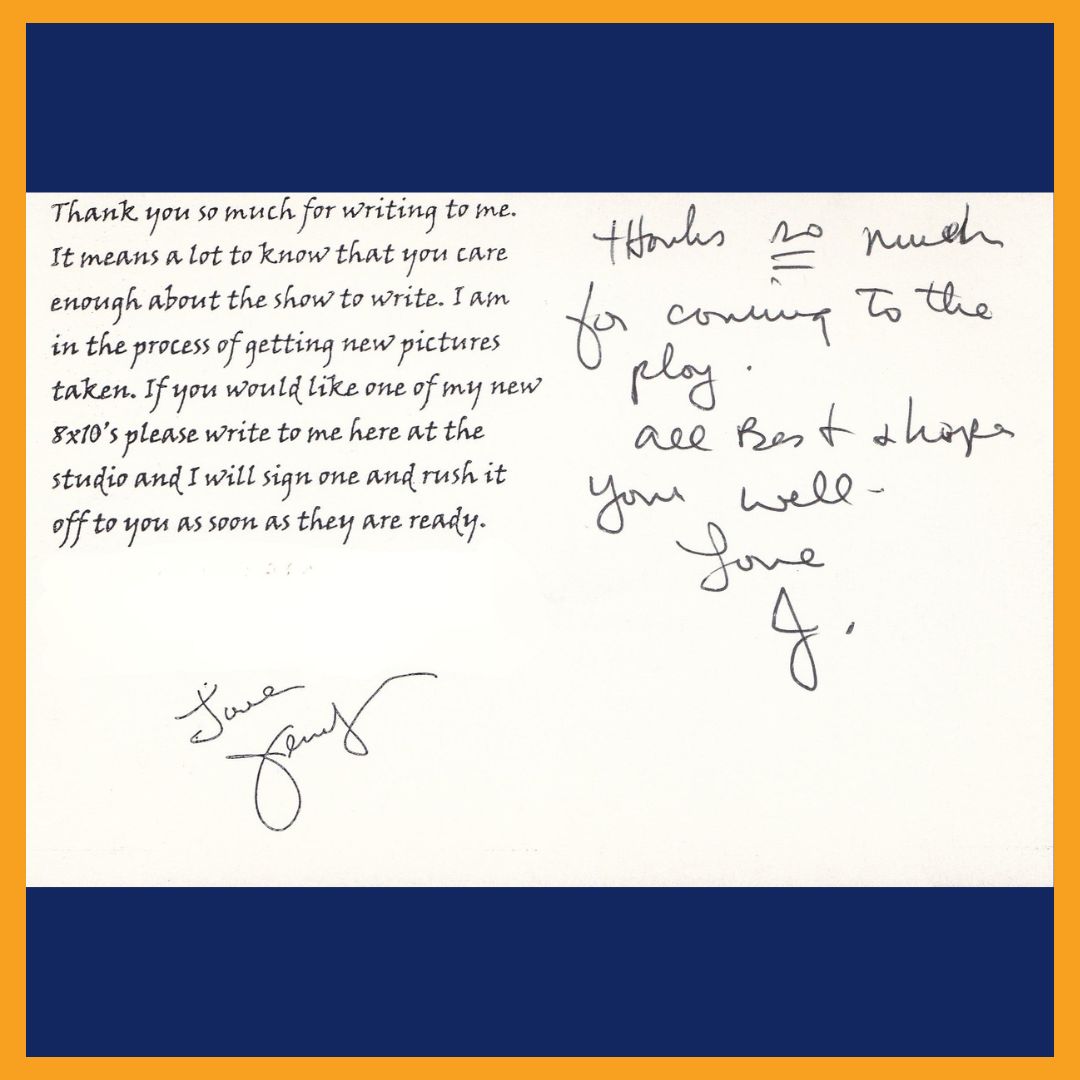 Thank you so much for writing to me.
It means a lot to know that you care
enough about the show to write. I am
in the process of getting new pictures
taken. If you would like one of my new
8x10's please write to me here at the
studio and I will sign one and rush it
off to you as soon as they are ready.
Love
thanks so much
for coming to the
play.
all Best & hope
your well-
Love
J.